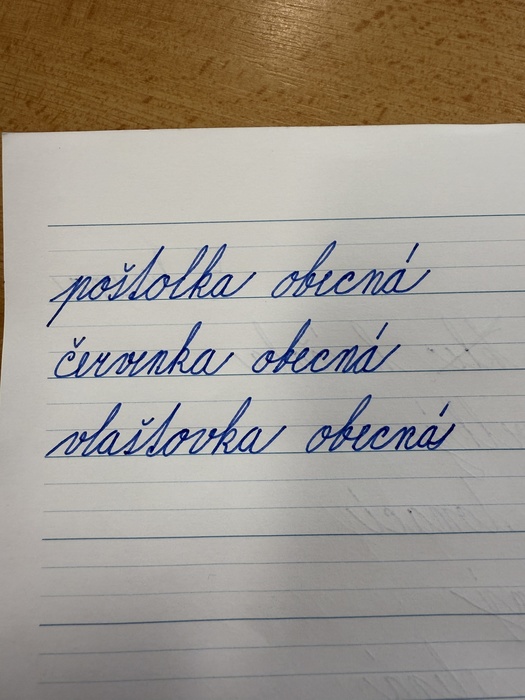 poštolka obecná
červenka obecná
vlaštovka obecná